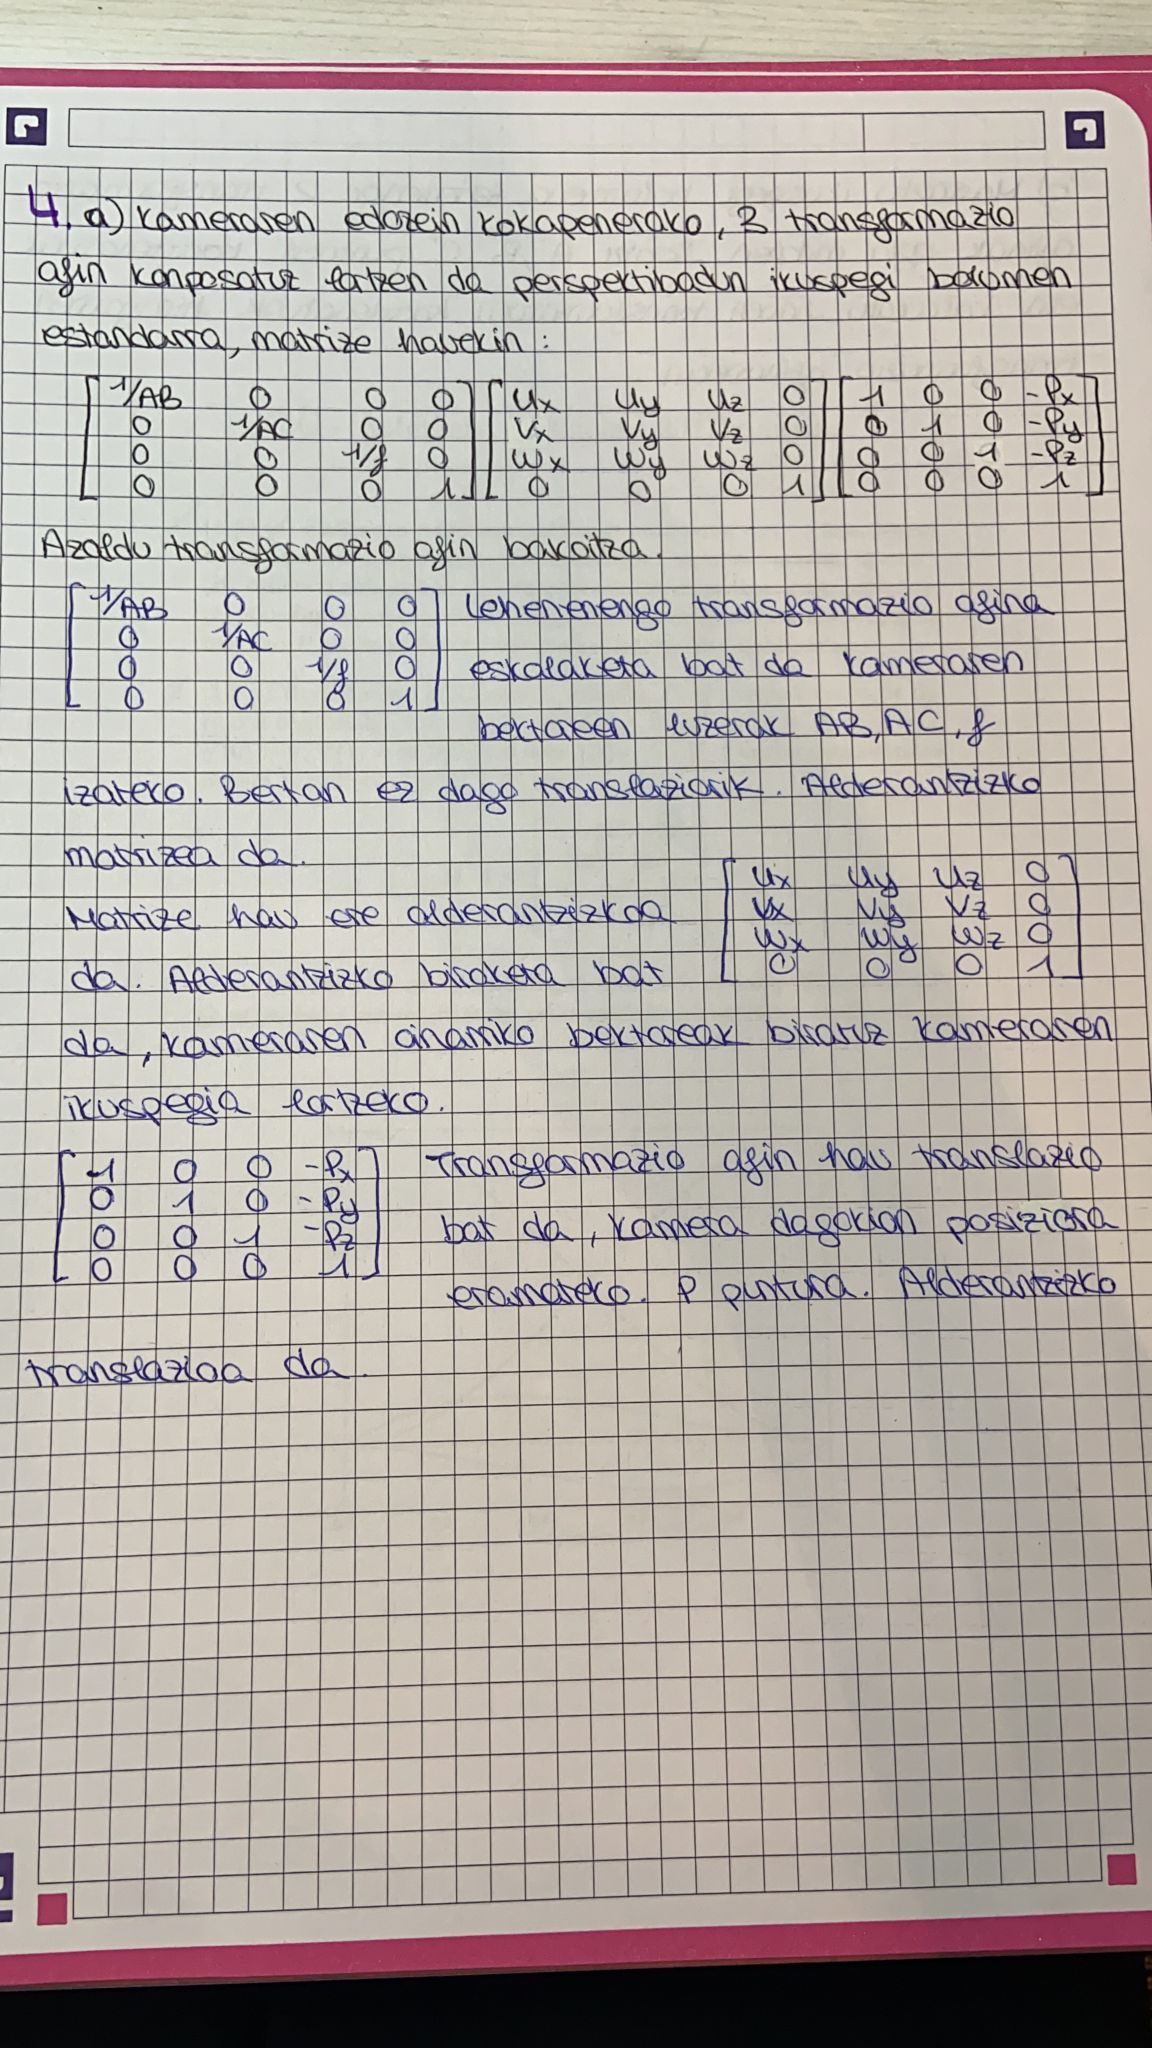 4. a) Kameraren edozein kokapenerako, 3 transformazio
afin konposatuz lortzen da perspektibadun ikuspegi bolumen
estandarra, matrize hauekin:
[1/AB 0 0 0] [Ux Uy Uz 0] [1 0 0 -Px]
[0 1/AC 0 0] [Vx Vy Vz 0] [0 1 0 -Py]
[0 0 1/f 0] [Wx Wy Wz 0] [0 0 1 -Pz]
[0 0 0 1] [0 0 0 1] [0 0 0 1]
Azaldu transformazio afin bakoitza.
[1/AB 0 0 0]
[0 1/AC 0 0]
[0 0 1/f 0]
[0 0 0 1]
Lehenenengo transformazio afina
eskalaketa bat da kameraren
bektoreen luzerak AB, AC, f
izateko. Bertan ez dago translaziorik. Alderantzizko
matrizea da.
Matrize hau ere alderantzizkoa
da. Alderantzizko biraketa bat
[Ux Uy Uz 0]
[Vx Vy Vz 0]
[Wx Wy Wz 0]
[0 0 0 1]
da, kameraren oinarriko bektoreak biratuz kameraren
ikuspegia lortzeko.
[1 0 0 -Px]
[0 1 0 -Py]
[0 0 1 -Pz]
[0 0 0 1]
Transformazio afin hau translazio
bat da, kamera dagokion posiziora
eramateko. P puntura. Alderantzizko
translazioa da.